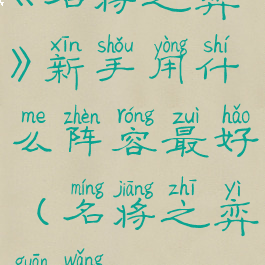 《名将之弈
xīn shǒu yòng shí
》新手用什
me zhèn róng zuì hǎo
么阵容最好
míng jiāng zhī yì
（名将之弈
guān wǎng